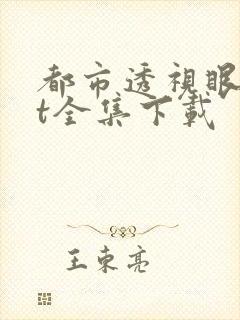 都市透視眼
t全集下載
王東亮